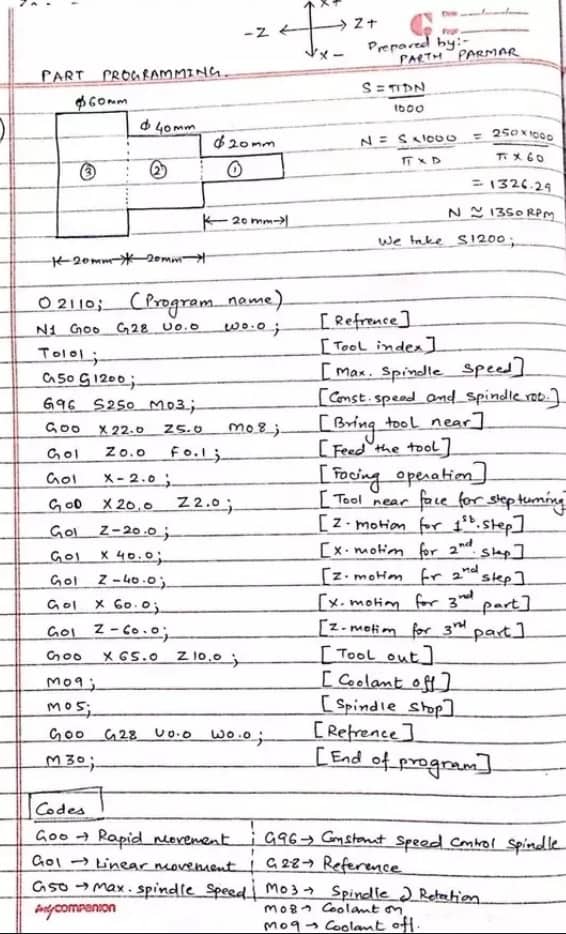 X+
-Z Z+
X-
Prepared by:-
PARTH PARMAR
PART PROGRAMMING.
S = πDN
1000
ϕ60mm
ϕ 40mm
ϕ 20mm
N = S x1000 = 250x1000
π x D π x 60
= 1326.29
N ≈ 1350 RPM
We take S1200;
③ ② ①
20mm
20mm 20mm
O 2110; (Program name)
N1 G00 G28 U0.0 W0.0; [Refrence]
T0101; [Tool index]
G50 S1200; [Max. Spindle speed]
G96 S250 M03; [Const. speed and spindle rot.]
G00 X22.0 Z5.0 M08; [Bring tool near]
G01 Z0.0 F0.1; [Feed the tool]
G01 X-2.0; [Facing operation]
G00 X20.0 Z2.0; [Tool near face for step turning
G01 Z-20.0; [Z-motion for 1st. step]
G01 X 40.0; [X-motion for 2nd. step]
G01 Z-40.0; [Z-motion for 2nd step]
G01 X 60.0; [X-motion for 3rd part]
G01 Z-60.0; [Z-motion for 3rd part]
G00 X65.0 Z10.0; [Tool out]
M09; [Coolant off]
M05; [Spindle stop]
G00 G28 U0.0 W0.0; [Refrence]
M30; [End of program]
Codes
G00 → Rapid movement G96 → Constant speed control spindle
G01 → Linear movement G28 → Reference
G50 → Max. spindle speed M03 → Spindle Rotation
M08 → Coolant on
companion M09 → Coolant off.